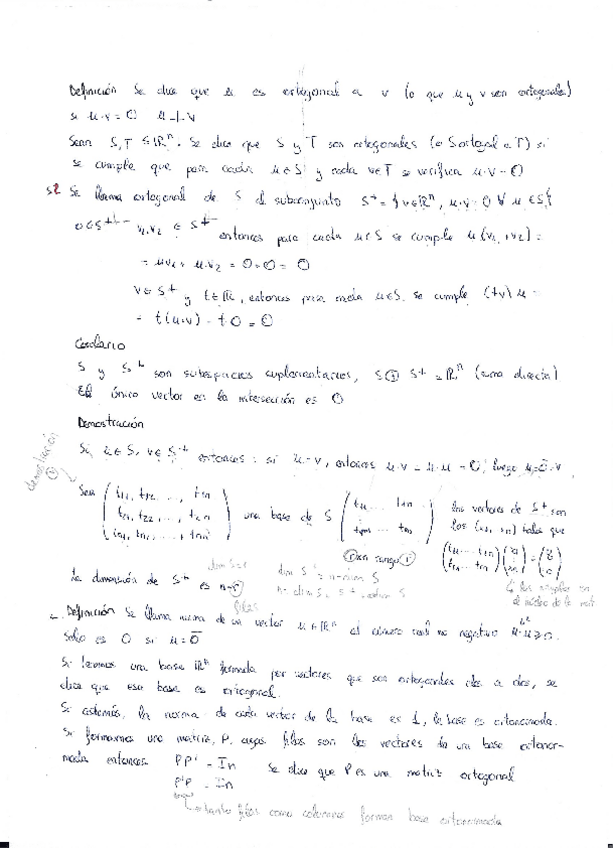 Definición Se dice que u es ortogonal a v (o que u y v son ortogonales)
si u·v = 0 u ⊥ v
Sean S, T ⊆ ℝⁿ. Se dice que S y T son ortogonales (o S ortogal a T) si
se cumple que para cada u ∈ S y cada v ∈ T se verifica u·v = 0
Se llama ortogonal de S al subconjunto S⊥ = { v ∈ ℝⁿ, u·v = 0 ∀ u ∈ S }
0 ∈ S⊥ v₁, v₂ ∈ S⊥ entonces para cada u ∈ S se cumple u(v₁ + v₂) =
= u v₁ + u·v₂ = 0 + 0 = 0
v ∈ S⊥ y t ∈ ℝ, entonces para cada u ∈ S se cumple (tv) u =
= t(u·v) = t·0 = 0
Corolario
S y S⊥ son subespacios suplementarios, S ⊕ S⊥ = ℝⁿ (suma directa)
El único vector en la intersección es 0
Demostración
Si u ∈ S, v ∈ S⊥ entonces: si u = v, entonces u·v = u·u = 0, luego u = 0 = v
Sea una base de S los vectores de S⊥ son
los tales que
con rango r
La dimensión de S⊥ es n-r
Definición Se llama norma de un vector u ∈ ℝⁿ al número real no negativo
Solo es 0 si u = 0
Si tenemos una base ℝⁿ formada por vectores que son ortogonales dos a dos, se
dice que esa base es ortogonal.
Si además, la norma de cada vector de la base es 1, la base es ortonormada.
Si formamos una matriz, P, cuyas filas son los vectores de una base ortonor-
mada entonces PPᵗ = In Se dice que P es una matriz ortogonal
PᵗP = In
tanto filas como columnas forman base ortonormada